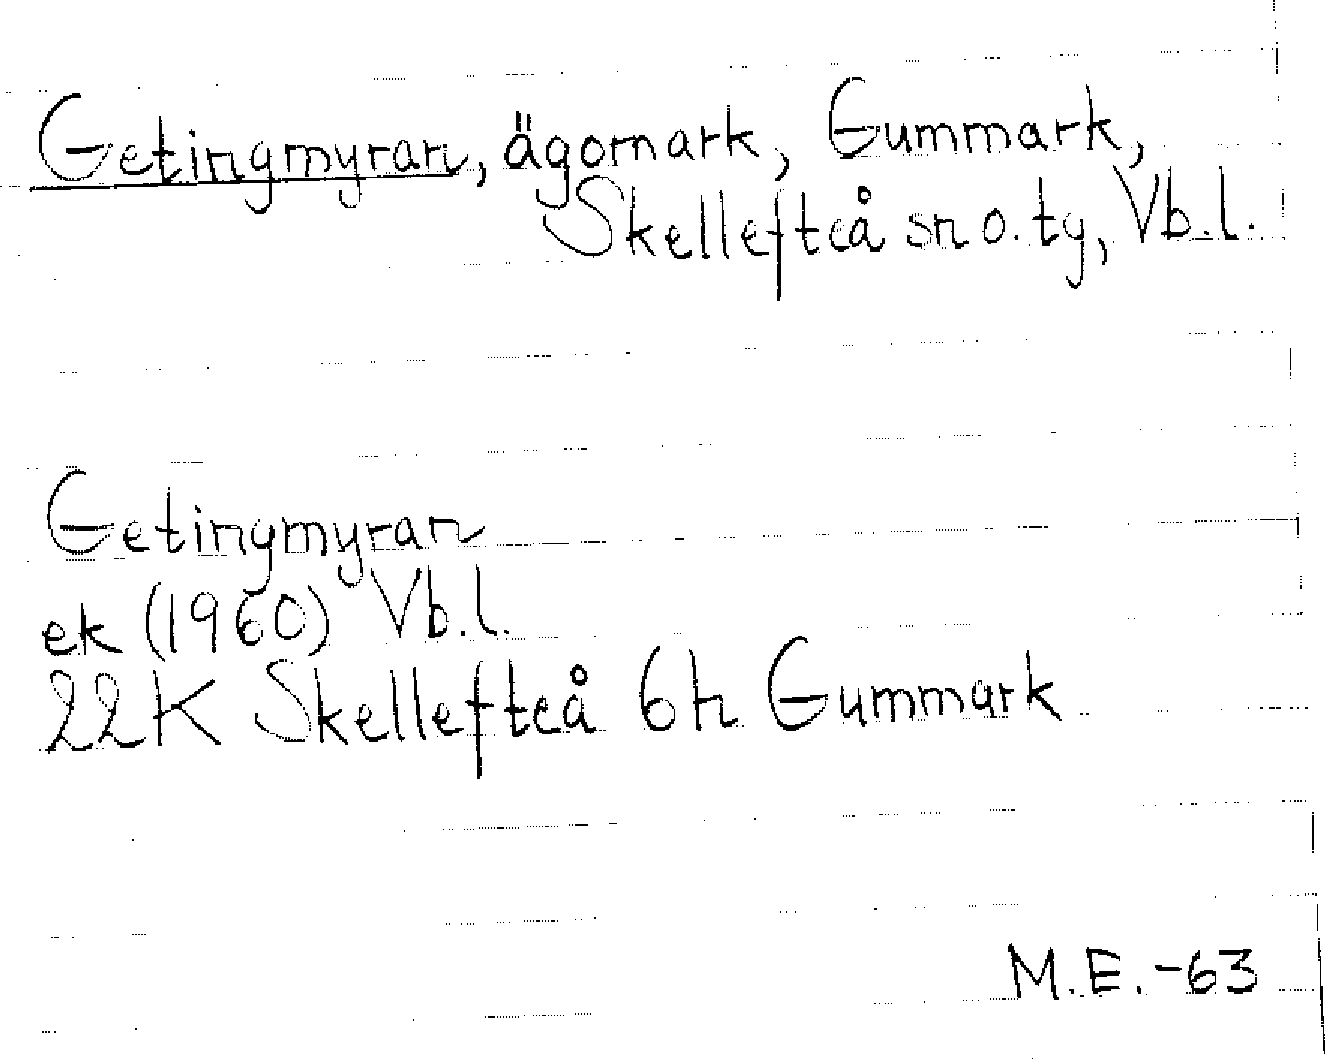 Getingmyran, ägomark, Gummark,
Skellefteå sn o. ty, Vb.l.
Getingmyran
ek (1960) Vb.l.
22K Skellefteå 6h Gummark
M.E.-63